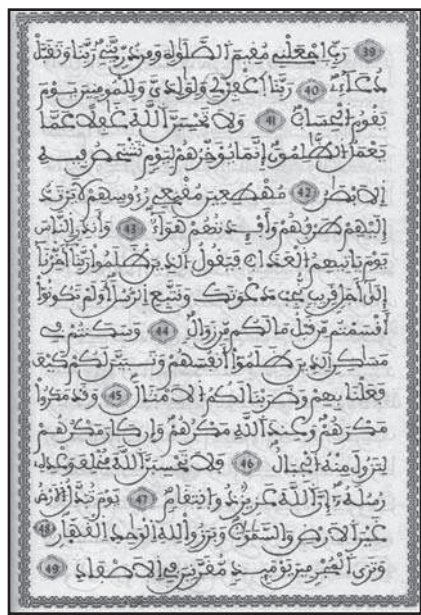 39 رَبِّ اِجْعَلْنِے مُقِيمَ اَلصَّلَوٰةِ وَمِن ذُرِّيَّتِے رَبَّنَا وَتَقَبَّلْ
دُعَآءِ 40 رَبَّنَا اَغْفِرْ لِے وَلِوَٰلِدَيَّ وَلِلْمُومِنِينَ يَوْمَ
يَقُومُ اُلْحِسَابُ 41 وَلَا تَحْسِبَنَّ اَللَّهَ غَٰفِلًا عَمَّا
يَعْمَلُ اُلظَّٰلِمُونَ إِنَّمَا يُوَخِّرُهُمْ لِيَوْمٍ تَشْخَصُ فِيهِ
اِلَابْصَٰرُ 42 مُهْطِعِينَ مُقْنِعِے رُءُوسِهِمْ لَا يَرْتَدُّ
إِلَيْهِمْ طَرْفُهُمْ وَأَفْـِٕدَتُهُمْ هَوَآءٌ 43 وَأَنذِرِ اِلنَّاسَ
يَوْمَ يَاتِيهِمُ اُلْعَذَابُ فَيَقُولُ اُلذِينَ ظَلَمُواْ رَبَّنَا أَخِّرْنَا
إِلَىٰ أَجَلٍ قَرِيبٍ نُّجِبْ دَعْوَتَكَ وَنَتَّبِعِ اِلرُّسُلَ أَوَلَمْ تَكُونُواْ
أَقْسَمْتُم مِّن قَبْلُ مَا لَكُم مِّن زَوَالٍ 44 وَسَكَنتُمْ فِے
مَسَٰكِنِ اِلذِينَ ظَلَمُواْ أَنفُسَهُمْ وَتَبَيَّنَ لَكُمْ كَيْفَ
فَعَلْنَا بِهِمْ وَضَرَبْنَا لَكُمُ اُلَامْثَالَ 45 وَقَدْ مَكَرُواْ
مَكْرَهُمْ وَعِندَ اَللَّهِ مَكْرُهُمْ وَإِن كَانَ مَكْرُهُمْ
لِتَزُولَ مِنْهُ اُلْجِبَالُ 46 فَلَا تَحْسِبَنَّ اَللَّهَ مُخْلِفَ وَعْدِهِۦ
رُسُلَهُۥٓ إِنَّ اَللَّهَ عَزِيزٌ ذُو اُنتِقَامٍ 47 يَوْمَ تُبَدَّلُ اُلَارْضُ
غَيْرَ اَلَارْضِ وَالسَّمَٰوَٰتُ وَبَرَزُواْ لِلهِ اِلْوَٰحِدِ اِلْقَهَّارِ 48
وَتَرَى اَلْمُجْرِمِينَ يَوْمَئِذٍ مُّقَرَّنِينَ فِے اِلَاصْفَادِ 49